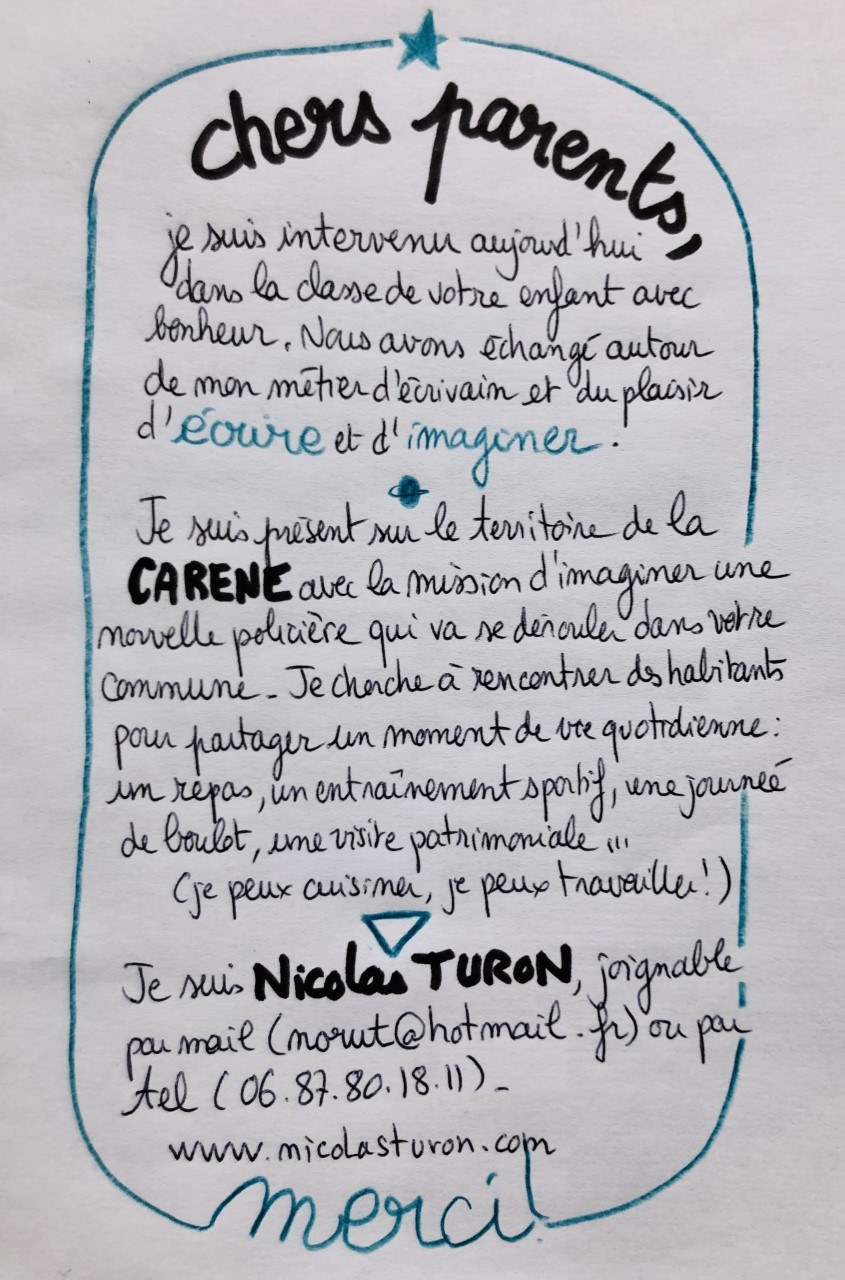 chers parents,
je suis intervenu aujourd'hui
dans la classe de votre enfant avec
bonheur. Nous avons échangé autour
de mon métier d'écrivain et du plaisir
d'écrire et d'imaginer.
Je suis présent sur le territoire de la
CARENE avec la mission d'imaginer une
nouvelle policière qui va se dérouler dans votre
commune. Je cherche à rencontrer des habitants
pour partager un moment de vie quotidienne :
un repas, un entraînement sportif, une journée
de boulot, une visite patrimoniale ...
(je peux cuisiner, je peux travailler !)
Je suis Nicolas TURON, joignable
par mail (norut@hotmail.fr) ou par
tel (06.87.80.18.11).
www.nicolasturon.com
merci!